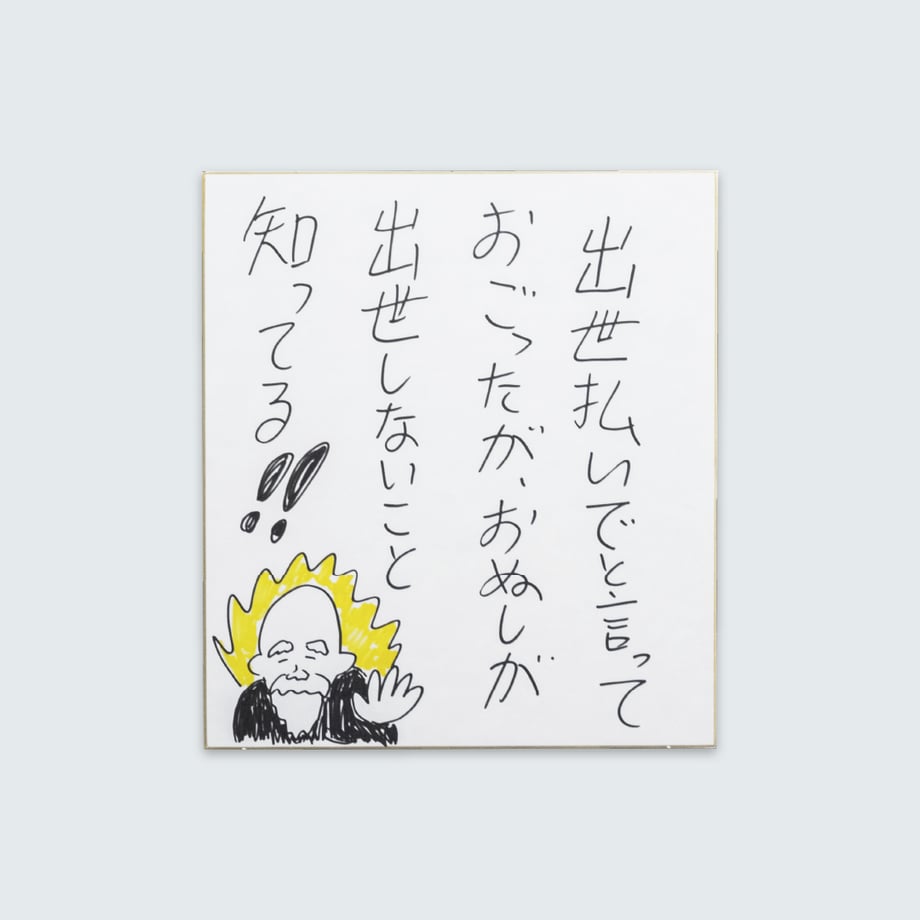 出世払いでと言って
おごったが、おぬしが
出世しないこと
知ってる!!